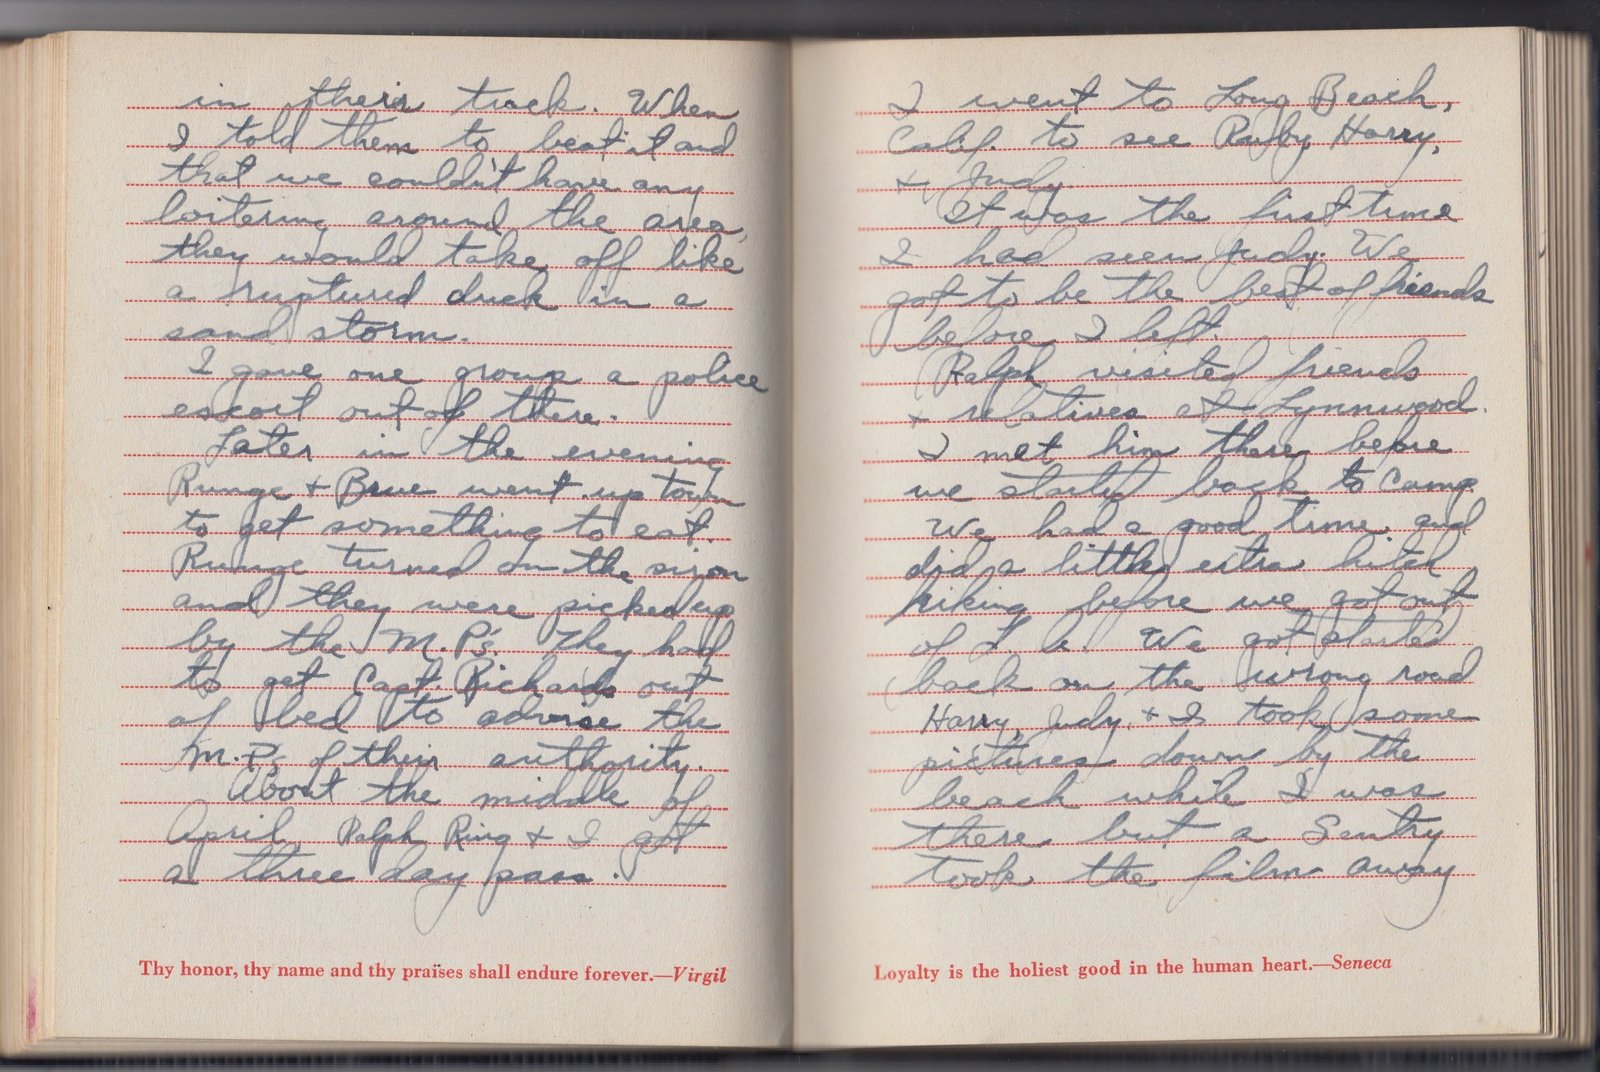 in their track. When
I told them to beat it and
that we couldn't have any
loitering around the area,
they would take off like
a ruptured duck in a
sand storm.
I gave one group a police
escort out of there.
Later in the evening
Runge + Brue went up town
to get something to eat.
Runge turned on the siron
and they were picked up
by the M.P.'s. They had
to get Capt. Richards out
of bed to advise the
M.P.s of their authority.
About the middle of
April, Ralph Ring + I got
a three day pass.
Thy honor, thy name and thy praises shall endure forever.—Virgil
I went to Long Beach,
Calif. to see Ruby, Harry,
+ Judy.
It was the first time
I had seen Judy. We
got to be the best of friends
before I left.
Ralph visited friends
+ relatives at Lynnwood.
I met him there before
we started back to Camp.
We had a good time, and
did a little extra hitch
hiking before we got out
of L. A. We got started
back on the wrong road
Harry, Judy, + I took some
pictures down by the
beach while I was
there but a Sentry
took the film away
Loyalty is the holiest good in the human heart.—Seneca